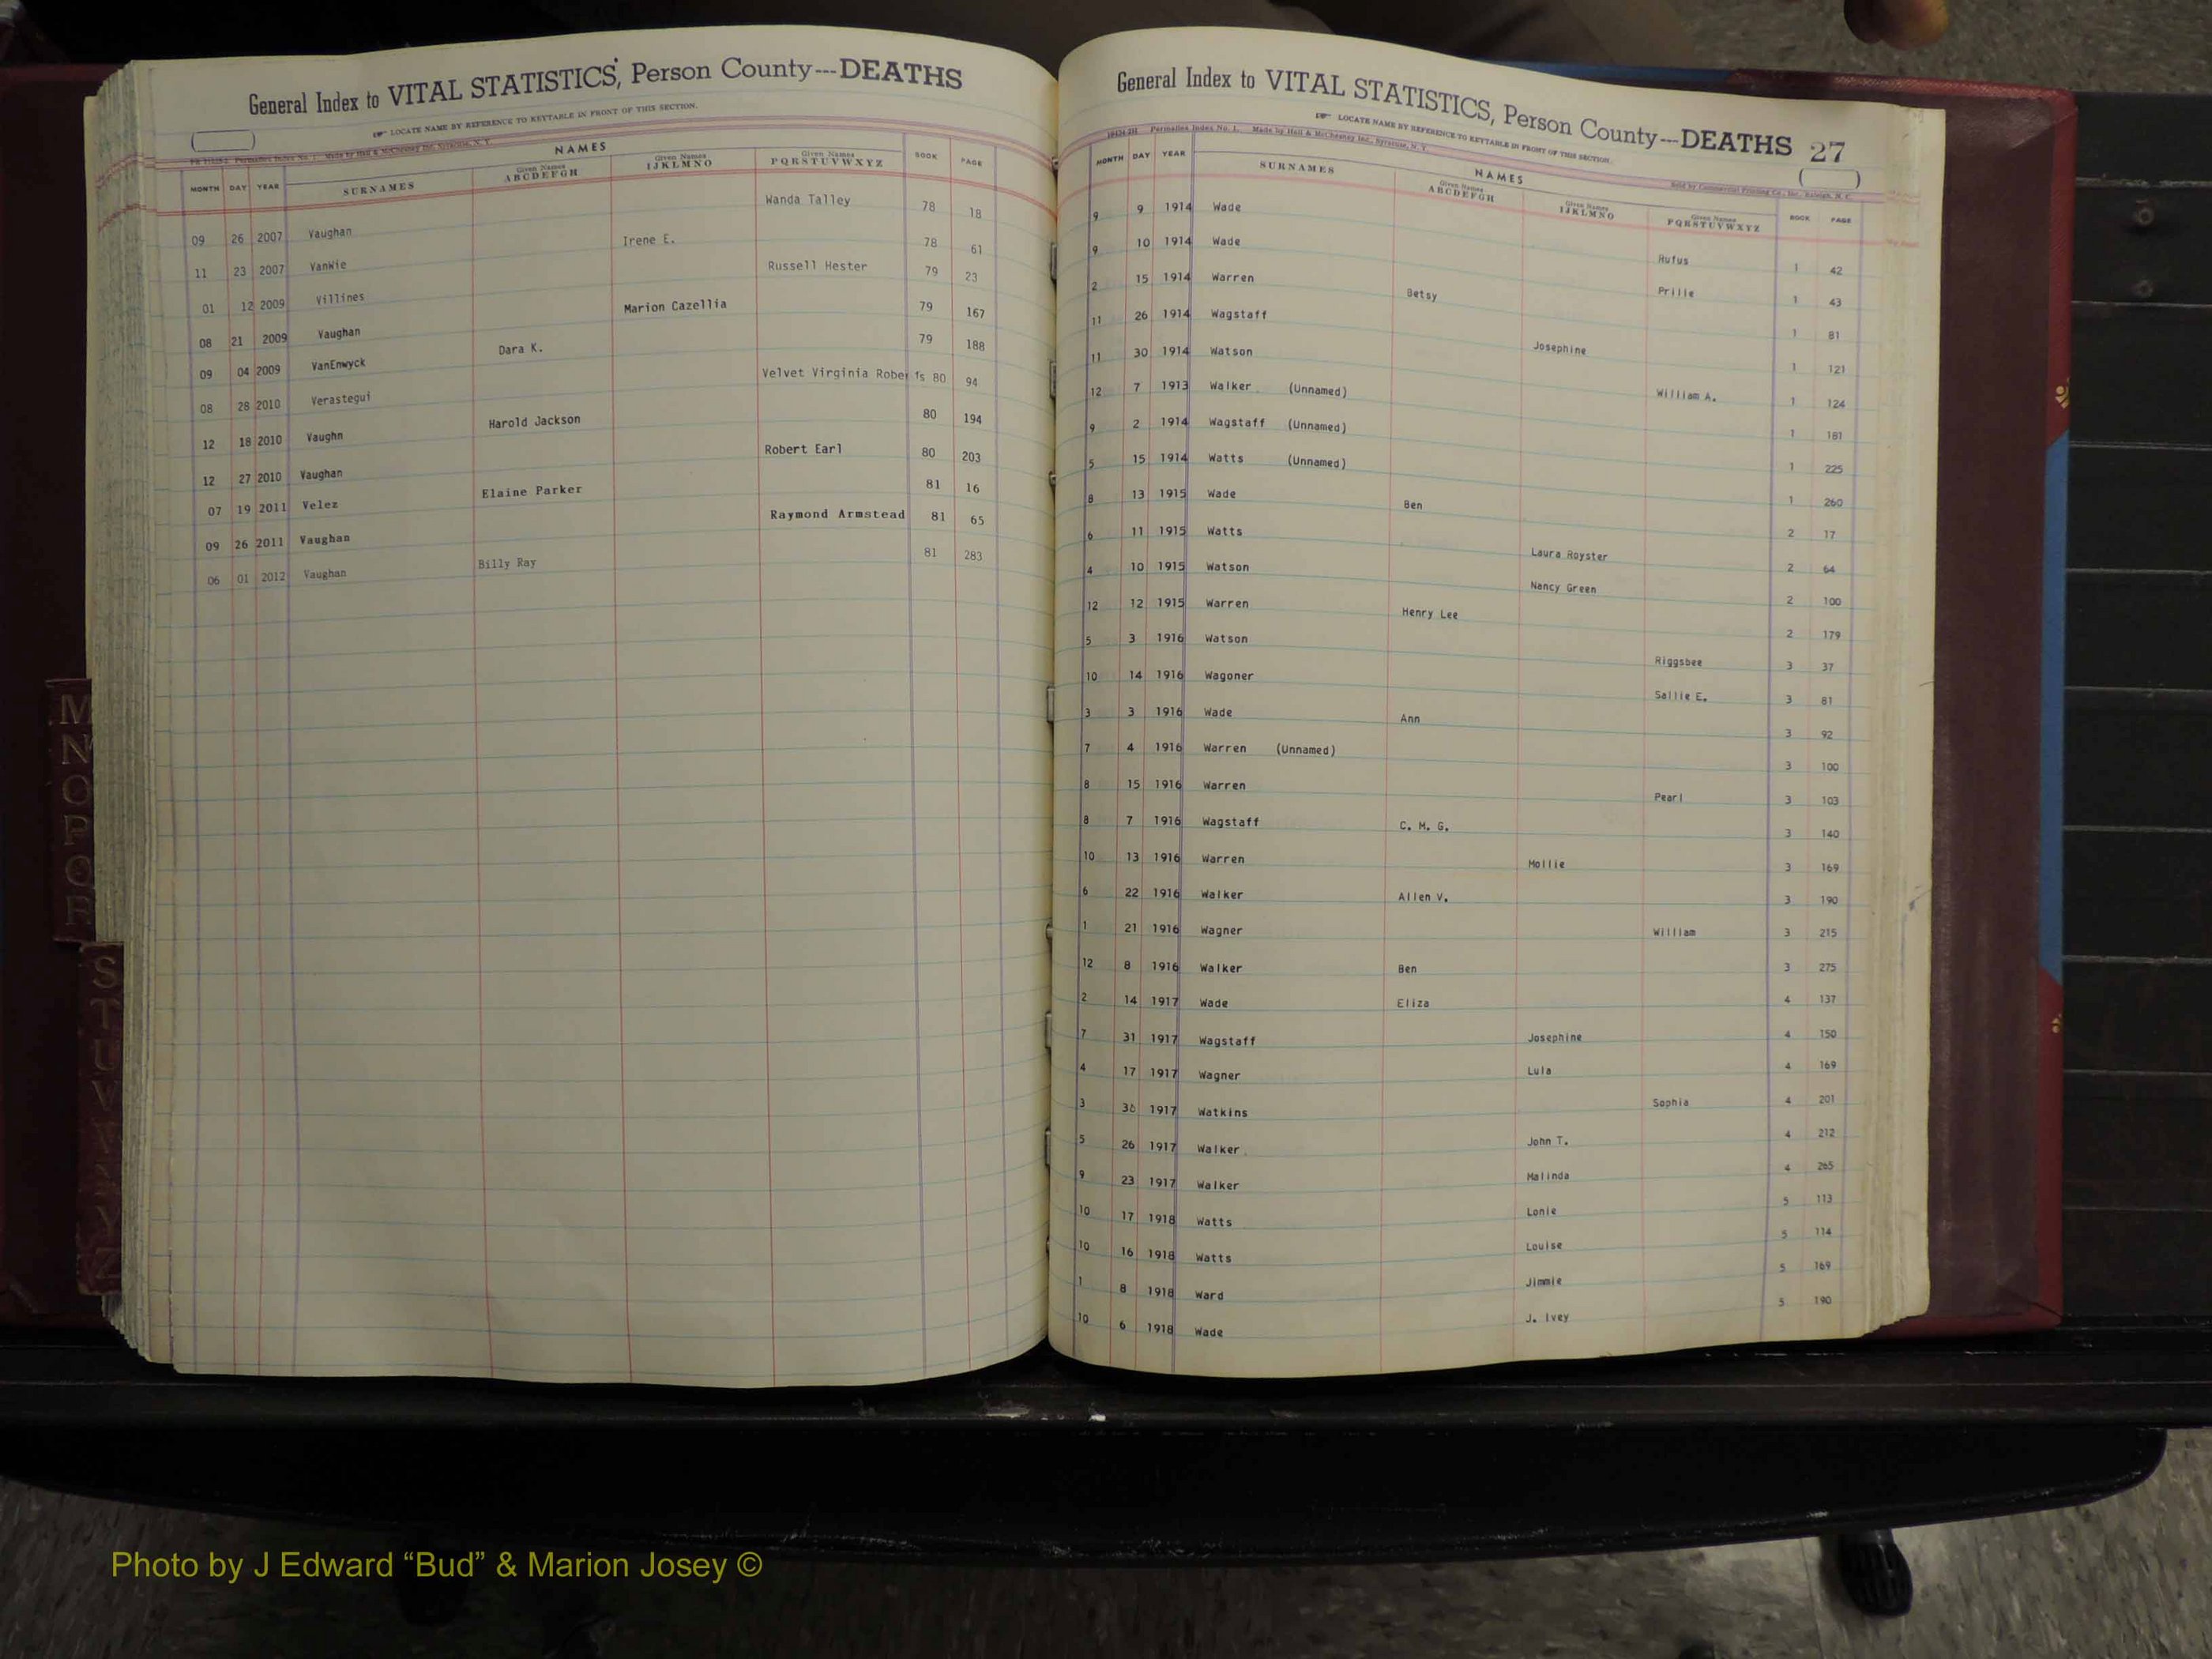 General Index to VITAL STATISTICS, Person County---DEATHS
LOCATE NAME BY REFERENCE TO KEYTABLE IN FRONT OF THIS SECTION.
NAMES
MONTH DAY YEAR SURNAMES Given Names ABCDEFGH Given Names IJKLMNO Given Names PQRSTUVWXYZ BOOK PAGE
09 26 2007 Vaughan Wanda Talley 78 18
11 23 2007 VanWie Irene E. 78 61
01 12 2009 Villines Russell Hester 79 23
08 21 2009 Vaughan Marion Cazellia 79 167
09 04 2009 VanEnwyck Dara K. 79 188
08 28 2010 Verastegui Velvet Virginia Roberts 80 94
12 18 2010 Vaughn Harold Jackson 80 194
12 27 2010 Vaughan Robert Earl 80 203
07 19 2011 Velez Elaine Parker 81 16
09 26 2011 Vaughan Raymond Armstead 81 65
06 01 2012 Vaughan Billy Ray 81 283
General Index to VITAL STATISTICS, Person County---DEATHS 27
LOCATE NAME BY REFERENCE TO KEYTABLE IN FRONT OF THIS SECTION.
Permadex Index No. 1. Made by Hall & McChesney Inc. Syracuse, N. Y.
Sold by Commercial Printing Co., Inc., Raleigh, N. C.
NAMES
MONTH DAY YEAR SURNAMES Given Names ABCDEFGH Given Names IJKLMNO Given Names PQRSTUVWXYZ BOOK PAGE
9 9 1914 Wade Rufus 1 42
9 10 1914 Wade Prille 1 43
2 15 1914 Warren Betsy 1 81
11 26 1914 Wagstaff Josephine 1 121
11 30 1914 Watson William A. 1 124
12 7 1913 Walker (Unnamed) 1 181
9 2 1914 Wagstaff (Unnamed) 1 225
5 15 1914 Watts (Unnamed) 1 260
8 13 1915 Wade Ben 2 17
6 11 1915 Watts Laura Royster 2 64
4 10 1915 Watson Nancy Green 2 100
12 12 1915 Warren Henry Lee 2 179
5 3 1916 Watson Riggsbee 3 37
10 14 1916 Wagoner Sallie E. 3 81
3 3 1916 Wade Ann 3 92
7 4 1916 Warren (Unnamed) 3 100
8 15 1916 Warren Pearl 3 103
8 7 1916 Wagstaff C. M. G. 3 140
10 13 1916 Warren Mollie 3 169
6 22 1916 Walker Allen V. 3 190
1 21 1916 Wagner William 3 215
12 8 1916 Walker Ben 3 275
2 14 1917 Wade Eliza 4 137
7 31 1917 Wagstaff Josephine 4 150
4 17 1917 Wagner Lula 4 169
3 30 1917 Watkins Sophia 4 201
5 26 1917 Walker John T. 4 212
9 23 1917 Walker Malinda 4 265
10 17 1918 Watts Lonie 5 113
10 16 1918 Watts Louise 5 114
1 8 1918 Ward Jimmie 5 169
10 6 1918 Wade J. Ivey 5 190
M
N
O
P
S
T
U
V
Photo by J Edward “Bud” & Marion Josey ©